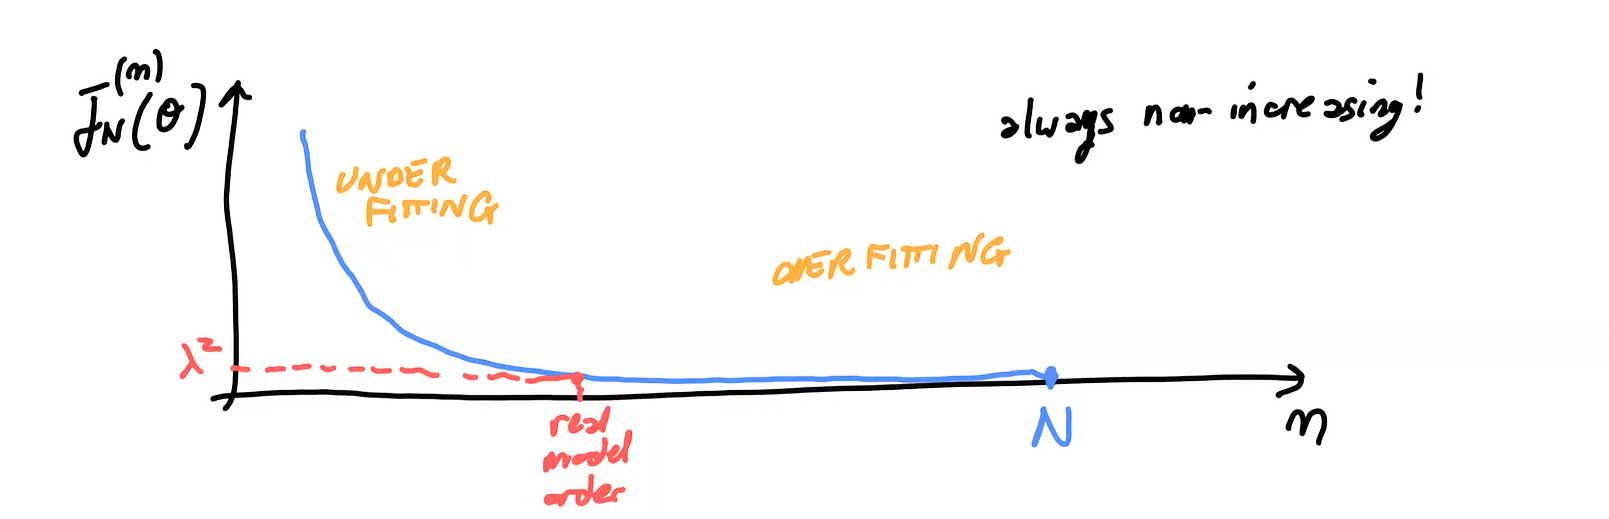 J̄_N^(n)(θ)
always non-increasing!
UNDER
FITTING
OVERFITTING
λ²
real
model
order
N
n